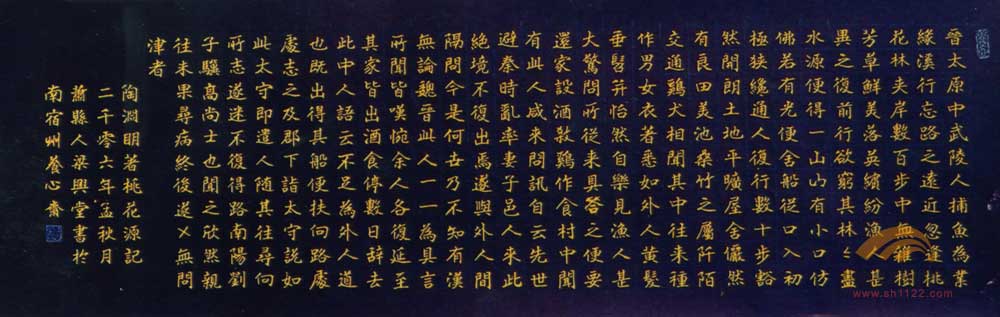 晉太原中武陵人捕魚為業
緣溪行忘路之遠近忽逢桃
花林夾岸數百步中無雜樹
芳草鮮美落英繽紛漁人甚
異之復前行欲窮其林林盡
水源便得一山山有小口仿
佛若有光便舍船從口入初
極狹纔通人復行數十步豁
然開朗土地平曠屋舍儼然
有良田美池桑竹之屬阡陌
交通鷄犬相聞其中往來種
作男女衣著悉如外人黃髮
垂髫并怡然自樂見漁人甚
大驚問所從來具答之便要
還家設酒殺鷄作食村中聞
有此人咸來問訊自云先世
避秦時亂率妻子邑人來此
絕境不復出焉遂與外人間
隔問今是何世乃不知有漢
無論魏晉此人一一為具言
所聞皆嘆惋余人各復延至
其家皆出酒食停數日辭去
此中人語云不足為外人道
也既出得其船便扶向路處
處志之及郡下詣太守說如
此太守即遣人隨其往尋向
所志遂迷不復得路南陽劉
子驥高尚士也聞之欣然親
往未果尋病終後遂乂無問
津者
陶淵明著桃花源記
二千零六年孟秋月
蕭縣人梁興堂書於
南宿州養心齋
www.sh1122.com